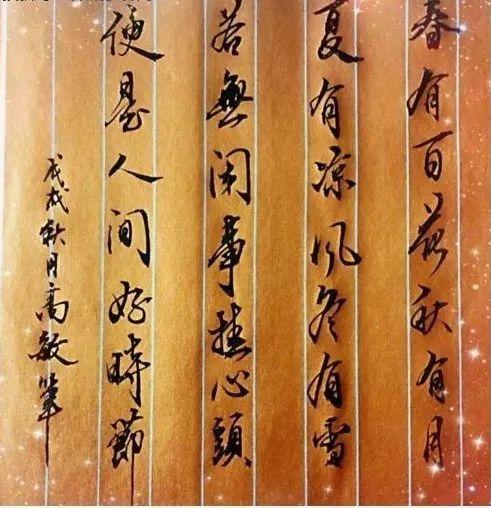 春有百花秋有月
夏有凉风冬有雪
若無闲事挂心頭
便是人间好時節
戊戌秋月高敏筆